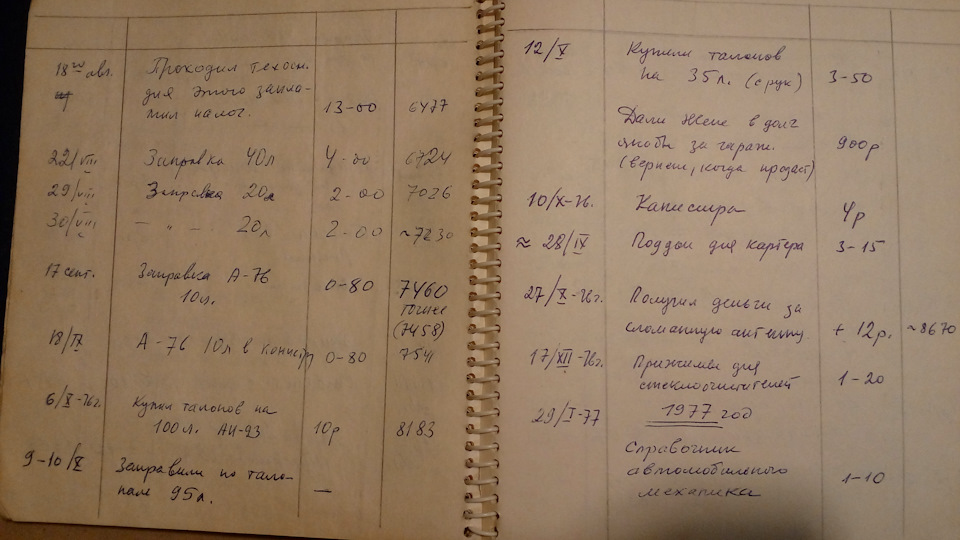 18го авг. Проходил техосм.
для этого запла-
тил налог. 13-00 6477
22/VIII Заправка 40л 4-00 6724
29/VIII Заправка 20л 2-00 7026
30/VIII — " — 20л 2-00 ~7230
17 сент. Заправка А-76
10л. 0-80 7460
точнее
(7458)
18/IX А-76 10л в канистру 0-80 7541
6/X-76г. Купил талонов на
100л. АИ-93 10р 8183
9-10/X Заправили по тало-
нам 95л. —
12/X Купили талонов
на 35л. (с рук) 3-50
Дали Жене в долг
якобы за гараж. 900р
(вернет, когда продаст)
10/X-76. Канистра 4р
≈ 28/IX Поддон для картера 3-15
27/X-76г. Получил деньги за
сломанную антенну. + 12р. ~8670
17/XII-76г. Прижимы для
стеклоочистителей 1-20
29/I-77 1977 год
Справочник
автомобильного
механика 1-10